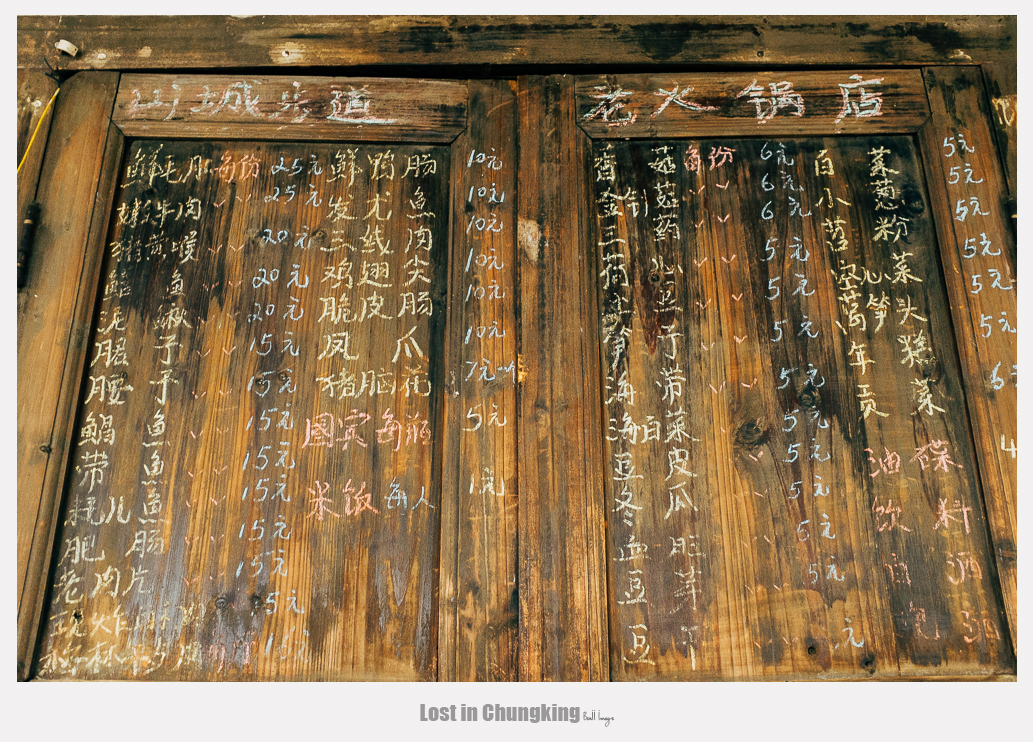 山城步道
老火锅店
鲜毛肚 每份 25元
牛肉 25元
猪黄喉 20元
鳝鱼 20元
泥鳅 20元
子 15元
腰子 15元
鲳鱼 15元
带鱼 15元
耗儿鱼 15元
肥肠 15元
老肉片 15元
现炸 5元
鲜鸭肠 10元
发尤鱼 10元
三线肉 10元
鸡翅尖 10元
脆皮肠 10元
凤爪 10元
猪脑花 7元
國宾 每瓶 5元
米饭 每人 1元
香菇 每份 6元
金针菇 6元
三 药 6元
心 5元
土豆 5元
笋子 5元
海带 5元
海白菜 5元
豆皮 5元
冬瓜 5元
血旺 5元
豆芽 5元
豆干 元
白菜 5元
小葱 5元
粉 5元
空心菜 5元
莴笋头 5元
年 菜 5元
贡菜 6
油碟 4
饮料
酒
酒
Lost in Chungking